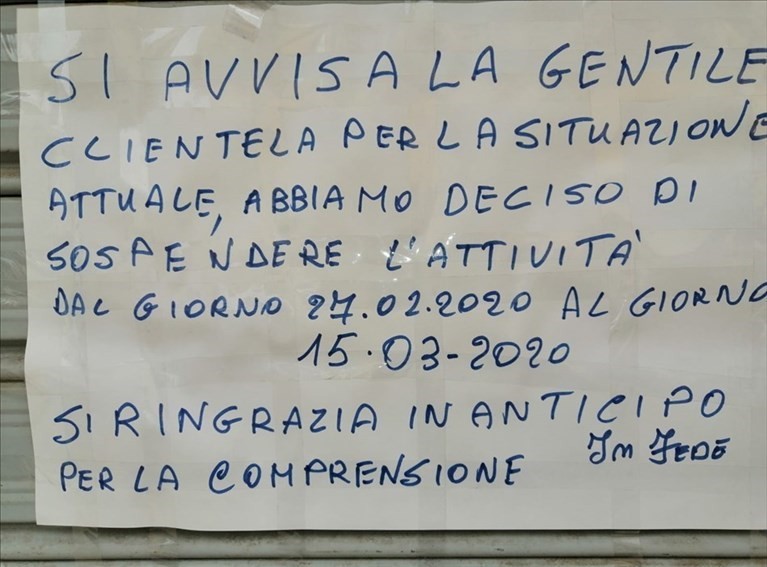 SI AVVISA LA GENTILE
CLIENTELA PER LA SITUAZIONE
ATTUALE, ABBIAMO DECISO DI
SOSPENDERE L'ATTIVITÀ
DAL GIORNO 27.02.2020 AL GIORNO
15.03-2020
SI RINGRAZIA IN ANTICIPO
PER LA COMPRENSIONE
In FEDE